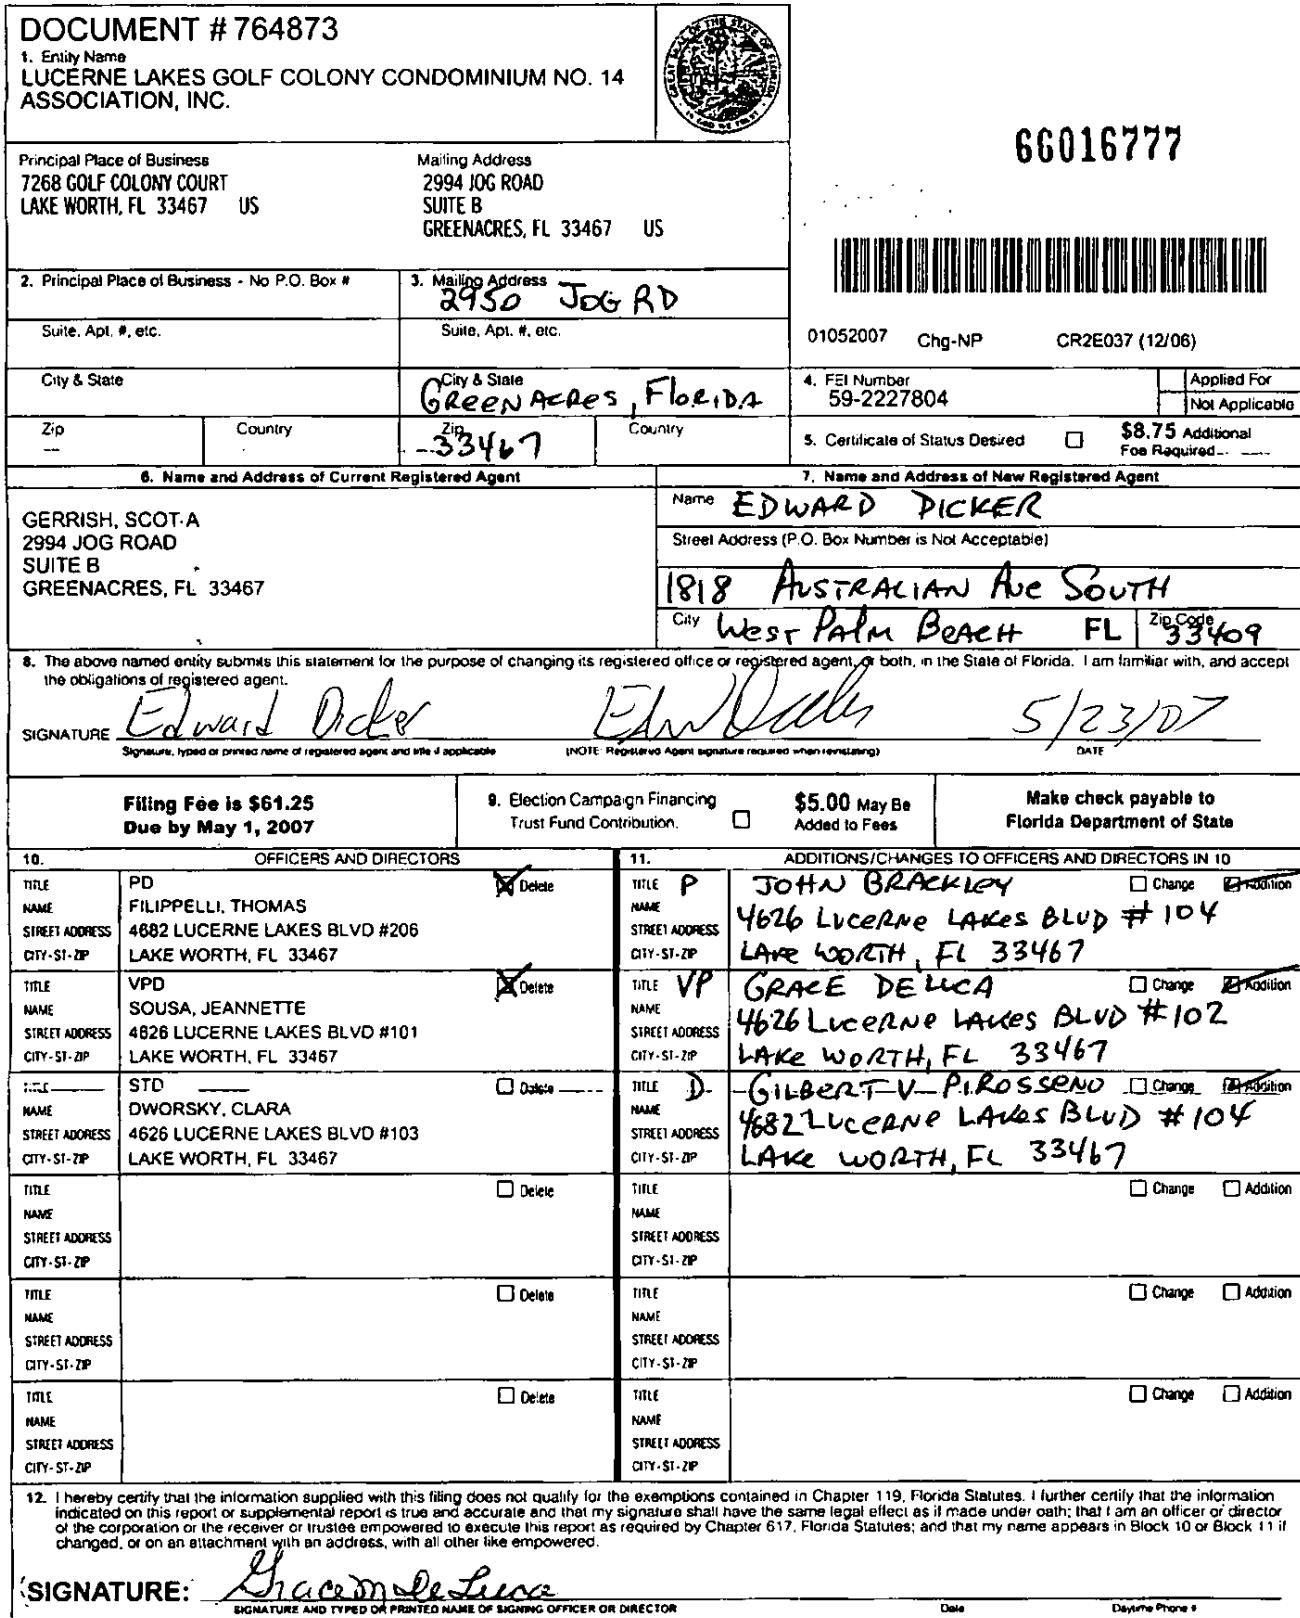 DOCUMENT # 764873
1. Entity Name
LUCERNE LAKES GOLF COLONY CONDOMINIUM NO. 14
ASSOCIATION, INC.
66016777
Principal Place of Business
7268 GOLF COLONY COURT
LAKE WORTH, FL 33467 US
Mailing Address
2994 JOG ROAD
SUITE B
GREENACRES, FL 33467 US
2. Principal Place of Business - No P.O. Box #
3. Mailing Address
2950 JOG RD
Suite, Apt. #, etc.
Suite, Apt. #, etc.
01052007 Chg-NP CR2E037 (12/06)
City & State
City & State
GREENACRES, FLORIDA
4. FEI Number
59-2227804
Applied For
Not Applicable
Zip
Country
Zip
33467
Country
5. Certificate of Status Desired
$8.75 Additional
Fee Required
6. Name and Address of Current Registered Agent
GERRISH, SCOT A
2994 JOG ROAD
SUITE B
GREENACRES, FL 33467
7. Name and Address of New Registered Agent
Name EDWARD DICKER
Street Address (P.O. Box Number is Not Acceptable)
1818 AUSTRALIAN AVE SOUTH
City WEST PALM BEACH FL Zip Code 33409
8. The above named entity submits this statement for the purpose of changing its registered office or registered agent, or both, in the State of Florida. I am familiar with, and accept
the obligations of registered agent.
SIGNATURE Edward Dicker 5/23/07
Signature, typed or printed name of registered agent and title if applicable
(NOTE: Registered Agent signature required when reinstating)
DATE
Filing Fee is $61.25
Due by May 1, 2007
9. Election Campaign Financing
Trust Fund Contribution.
$5.00 May Be
Added to Fees
Make check payable to
Florida Department of State
10. OFFICERS AND DIRECTORS
TITLE PD Delete
NAME FILIPPELLI, THOMAS
STREET ADDRESS 4682 LUCERNE LAKES BLVD #206
CITY-ST-ZIP LAKE WORTH, FL 33467
TITLE VPD Delete
NAME SOUSA, JEANNETTE
STREET ADDRESS 4626 LUCERNE LAKES BLVD #101
CITY-ST-ZIP LAKE WORTH, FL 33467
TITLE STD Delete
NAME DWORSKY, CLARA
STREET ADDRESS 4626 LUCERNE LAKES BLVD #103
CITY-ST-ZIP LAKE WORTH, FL 33467
TITLE Delete
NAME
STREET ADDRESS
CITY-ST-ZIP
TITLE Delete
NAME
STREET ADDRESS
CITY-ST-ZIP
TITLE Delete
NAME
STREET ADDRESS
CITY-ST-ZIP
11. ADDITIONS/CHANGES TO OFFICERS AND DIRECTORS IN 10
TITLE P JOHN BRACKLEY Change Addition
NAME
STREET ADDRESS 4626 LUCERNE LAKES BLVD #104
CITY-ST-ZIP LAKE WORTH, FL 33467
TITLE VP GRACE DELUCA Change Addition
NAME
STREET ADDRESS 4626 LUCERNE LAKES BLVD #102
CITY-ST-ZIP LAKE WORTH, FL 33467
TITLE D GILBERT V PIROSSENO Change Addition
NAME
STREET ADDRESS 4682 LUCERNE LAKES BLVD #104
CITY-ST-ZIP LAKE WORTH, FL 33467
TITLE Change Addition
NAME
STREET ADDRESS
CITY-ST-ZIP
TITLE Change Addition
NAME
STREET ADDRESS
CITY-ST-ZIP
TITLE Change Addition
NAME
STREET ADDRESS
CITY-ST-ZIP
12. I hereby certify that the information supplied with this filing does not qualify for the exemptions contained in Chapter 119, Florida Statutes. I further certify that the information
indicated on this report or supplemental report is true and accurate and that my signature shall have the same legal effect as if made under oath; that I am an officer or director
of the corporation or the receiver or trustee empowered to execute this report as required by Chapter 617, Florida Statutes; and that my name appears in Block 10 or Block 11 if
changed, or on an attachment with an address, with all other like empowered.
SIGNATURE: Grace M De Luca
SIGNATURE AND TYPED OR PRINTED NAME OF SIGNING OFFICER OR DIRECTOR
Date
Daytime Phone #